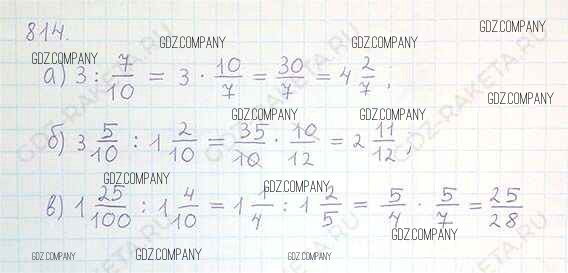 814.
GDZ.COMPANY GDZ.COMPANY GDZ.COMPANY GDZ.COMPANY
а) 3 : 7/10 = 3 · 10/7 = 30/7 = 4 2/7;
GDZ.COMPANY
GDZ.COMPANY GDZ.COMPANY
б) 3 5/10 : 1 2/10 = 35/10 · 10/12 = 2 11/12;
GDZ.COMPANY GDZ.COMPANY
в) 1 25/100 : 1 4/10 = 1 1/4 : 1 2/5 = 5/4 · 5/7 = 25/28
GDZ.COMPANY
GDZ.COMPANY GDZ.COMPANY GDZ.COMPANY
GDZ-RAKETA.RU
GDZ-RAKETA.RU